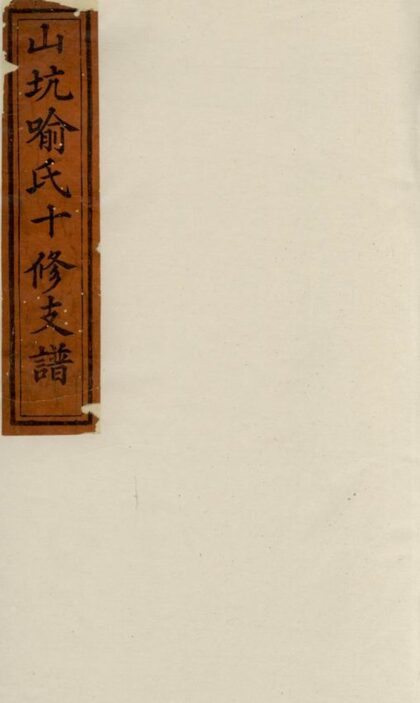 山坑喻氏十修支譜